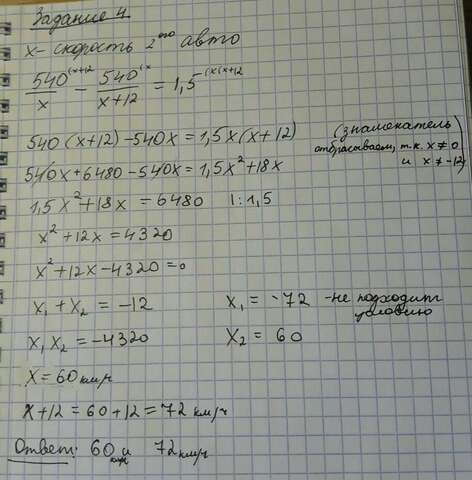 Задание 4
x - скорость 2ого авто
540^(x+12 / x - 540^(x / x+12 = 1,5^(x(x+12
540(x+12) - 540x = 1,5x(x+12) (знаменатель
отбрасываем, т.к. x ≠ 0
и x ≠ -12)
540x + 6480 - 540x = 1,5x² + 18x
1,5x² + 18x = 6480 | : 1,5
x² + 12x = 4320
x² + 12x - 4320 = 0
x₁ + x₂ = -12 x₁ = -72 - не подходит
условию
x₁ x₂ = -4320 x₂ = 60
x = 60 км/ч
x + 12 = 60 + 12 = 72 км/ч
Ответ: 60 км/ч и 72 км/ч